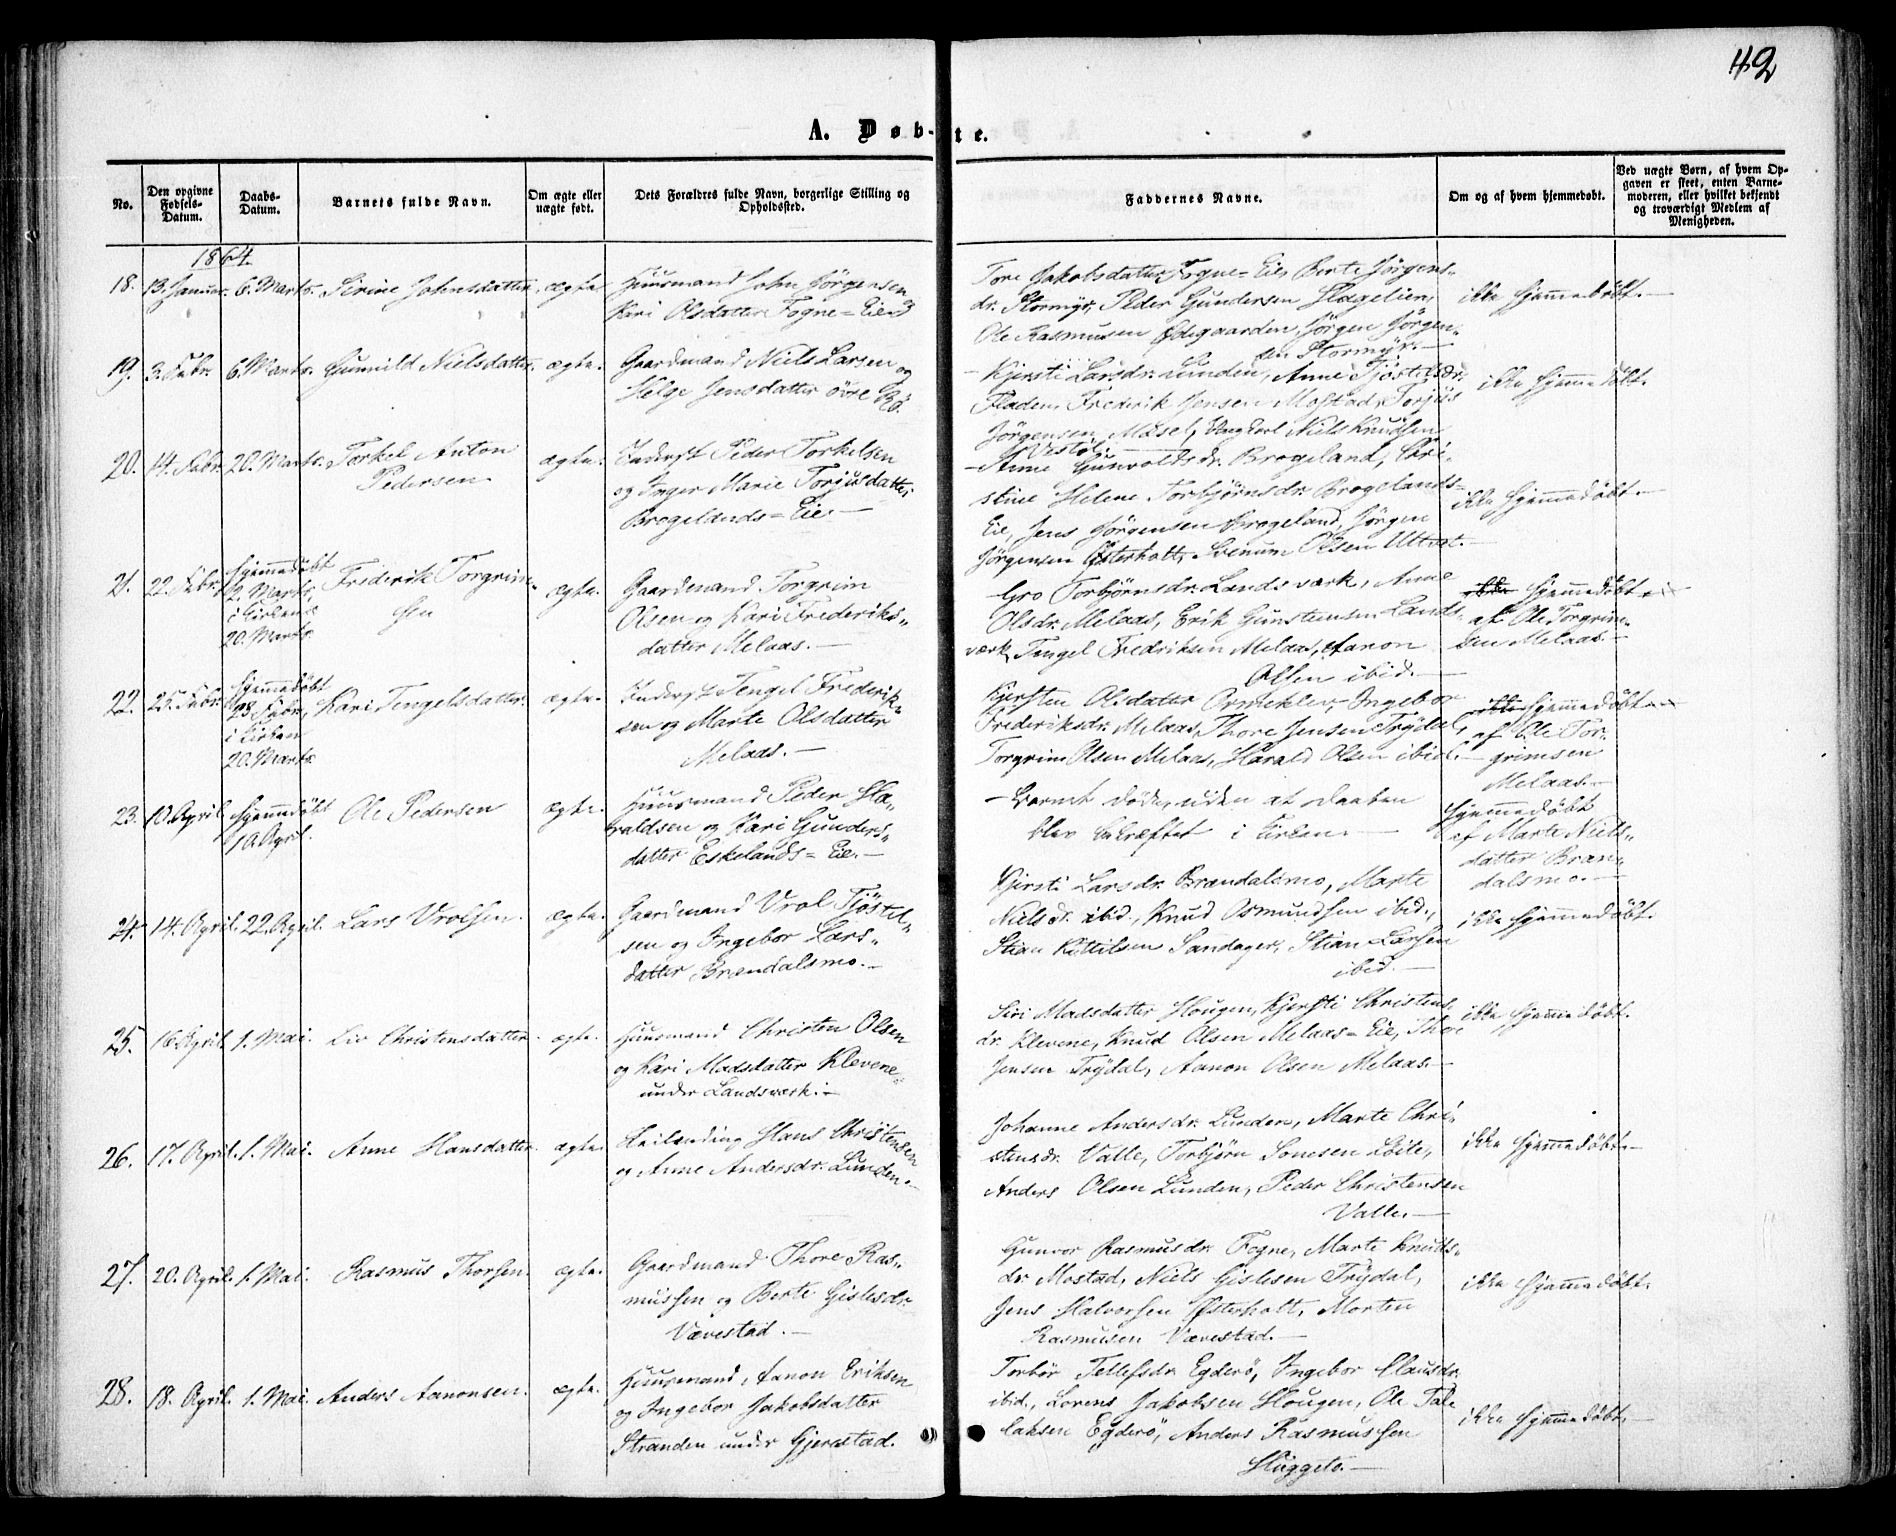 42
A. Døb-te.
No.
Den opgivne
Fødsels-
Datum.
Daabs-
Datum.
Barnets fulde Navn.
Om ægte eller
uægte født.
Dets Forældres fulde Navn, borgerlige Stilling og
Opholdssted.
Faddernes Navne.
Om og af hvem hjemmedøbt.
Ved uægte Børn, af hvem Op-
gaven er skeet, enten Barne-
moderen, eller hvilket bekjendt
og troværdigt Medlem af
Menigheden.
1864.
18. 13. Januar. 6. Marts. Sirine Johnsdatter. ægte
Huusmand John Jörgensen og
Kari Olsdatter Fogne=Eie.
Tore Jakobsdatter Fogne=Eie, Berte Jörgens-
dr. Stormyr, Peder Gundersen Slagelien,
Ole Rasmusen Ödegaarden, Jörgen Jörgen-
sen Stormyr.
ikke hjemmedöbt.
19. 3. Febr. 6. Marts. Gunnild Nielsdatter. ægte.
Gaardmand Niels Larsen og
Helge Jensdatter övre Rö.
Kjersti Larsdr. Lunden, Anne Tjöstelsdr.
Fladen, Frederik Jensen Mostad, Torjus
Jörgensen Mösel, Ungkarl Niels Knudsen
Vestöl.
ikke hjemmedöbt.
20. 14. Febr. 20. Marts. Terkel Anton
Pedersen
ægte.
Inderst Peder Torkelsen
og Inger Marie Torjusdatter
Brogelands=Eie.
Anne Gunvoldsdr. Brogeland, Chri-
stine Helene Torbjörnsdr. Brogelands-
Eie, Jens Jörgensen Brogeland, Jörgen
Jörgensen Österholt, Olsen
ikke hjemmedöbt.
21. 22. Febr. hjemmedöbt
2. Marts,
i Kirken
20. Marts.
Frederik Torgrim-
sen
ægte.
Gaardmand Torgrim
Olsen og Kari Frederiks-
datter Melaas.
Gro Torbjörnsdr. Landsværk, Anne
Olsdr. Melaas, Erik Gunstensen Lands-
værk, Tengel Fredriksen Melaas, Aanon
Olsen ibid.
ikke hjemmedöbt
af Ole Torgrim-
sen Melaas.
22. 25. Febr. hjemmedöbt
28 Febr.,
i Kirken
20. Marts
Kari Tengelsdatter. ægte.
Inderst Tengel Frederik-
sen og Marte Olsdatter
Melaas.
Kjersten Olsdatter Ingebor
Frederiksdr. Melaas, Thore Jensen Trydal,
Torgrim Olsen Melaas, Harald Olsen ibid.
ikke hjemmedöbt
af Ole Tor-
grimsen
Melaas.
23. 10. April. hjemmedöbt
10. April.
Ole Pedersen ægte.
Huusmand Peder Ha-
raldsen og Kari Gunders-
datter Eskelands=Eie.
Barnet döde, uden at Daaben
blev bekræftet i Kirken.
hjemmedöbt
af Marte Niels-
datter Bræn-
dalsmo.
24. 14. April. 22. April. Lars Vrolsen. ægte.
Gaardmand Vrol Tjöstel-
sen og Ingebor Lars-
datter Brændalsmo.
Kjersti Larsdr. Brændalsmo, Marte
Nielsdr. ibid., Knud Osmundsen ibid.,
Stian Kittilsen Sandager, Stian Larsen
ibid.
ikke hjemmedöbt.
25. 16 April. 1. Mai. Liv Christensdatter. ægte.
Huusmand Christen Olsen
og Kari Madsdatter Klevene
under Landsværk.
Siri Madsdatter Hougen, Kjersti Christens-
dr. Klevene, Knud Olsen Melaas=Eie, Thor
Jensen Trydal, Aanon Olsen Melaas.
ikke hjemmedöbt.
26. 17. April. 1. Mai. Anne Hansdatter. ægte.
Leilending Hans Christensen
og Anne Andersdr. Lunden.
Johanne Andersdr. Lunden, Marte Chri-
stensdr. Valle, Torbjörn Lonesen
Anders Olsen Lunden, Peder Christensen
Valle.
ikke hjemmedöbt.
27. 20. April. 1. Mai. Rasmus Thorsen. ægte.
Gaardmand Thore Ras-
mussen og Berte Gislesdr.
Vævestad.
Gunvor Rasmusdr. Fogne, Marte Knuds-
dr. Mostad, Niels Gislesen Trydal,
Jens Halvorsen Österholt, Morten
Rasmusen Vævestad.
ikke hjemmedöbt.
28. 18. April. 1. Mai. Anders Aanonsen. ægte.
Huusmand Aanon Eriksen
og Ingebor Jakobsdatter
Stranden under Gjerestad.
Torbör Tellefsdr. Egderö, Ingebor Clausdr.
ibid., Lorens Jakobsen Hougen, Ole Tal-
laksen Egderö, Anders Rasmussen
Huggeto.
ikke hjemmedöbt.